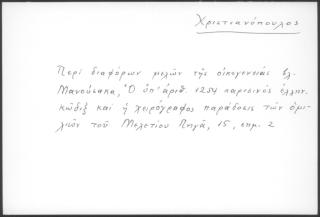 Χριστιανόπουλος
Περὶ διαφόρων μελῶν τῆς οἰκογενείας βλ.
Μανούσακα, Ὁ ὑπ' ἀριθ. 1254 παρισινὸς ἑλλην.
κώδιξ καὶ ἡ χειρόγραφος παράδοσις τῶν ὁμι-
λιῶν τοῦ Μελετίου Πηγᾶ, 15, σημ. 2